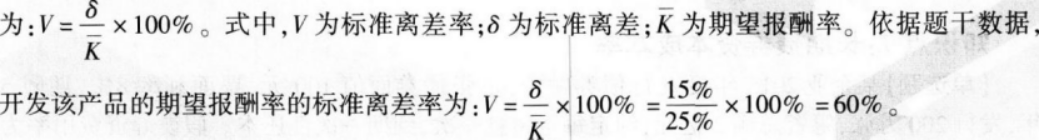 为:V = δ/K̄ × 100% 。式中,V 为标准离差率;δ 为标准离差;K̄ 为期望报酬率。依据题干数据,
开发该产品的期望报酬率的标准离差率为:V = δ/K̄ × 100% = 15%/25% × 100% = 60%。